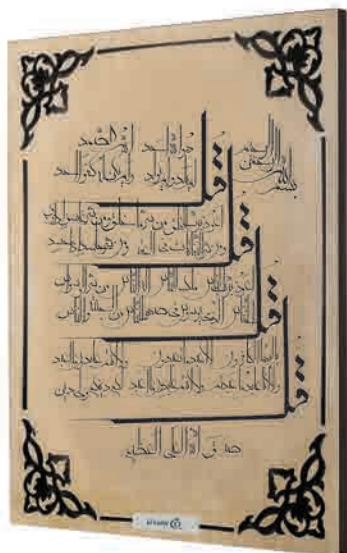 بسم الله الرحمن الرحيم
قل هو الله احد الله الصمد
لم يلد ولم يولد ولم يكن له كفوا احد
قل اعوذ برب الفلق من شر ما خلق ومن شر غاسق اذا وقب
ومن شر النفاثات في العقد ومن شر حاسد اذا حسد
قل اعوذ برب الناس ملك الناس اله الناس من شر الوسواس
الخناس الذي يوسوس في صدور الناس من الجنة والناس
قل يا ايها الكافرون لا اعبد ما تعبدون ولا انتم عابدون ما اعبد
ولا انا عابد ما عبدتم ولا انتم عابدون ما اعبد لكم دينكم ولي دين
صدق الله العلي العظيم